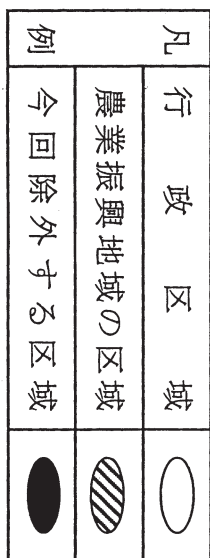 凡例
行政区域
農業振興地域の区域
今回除外する区域